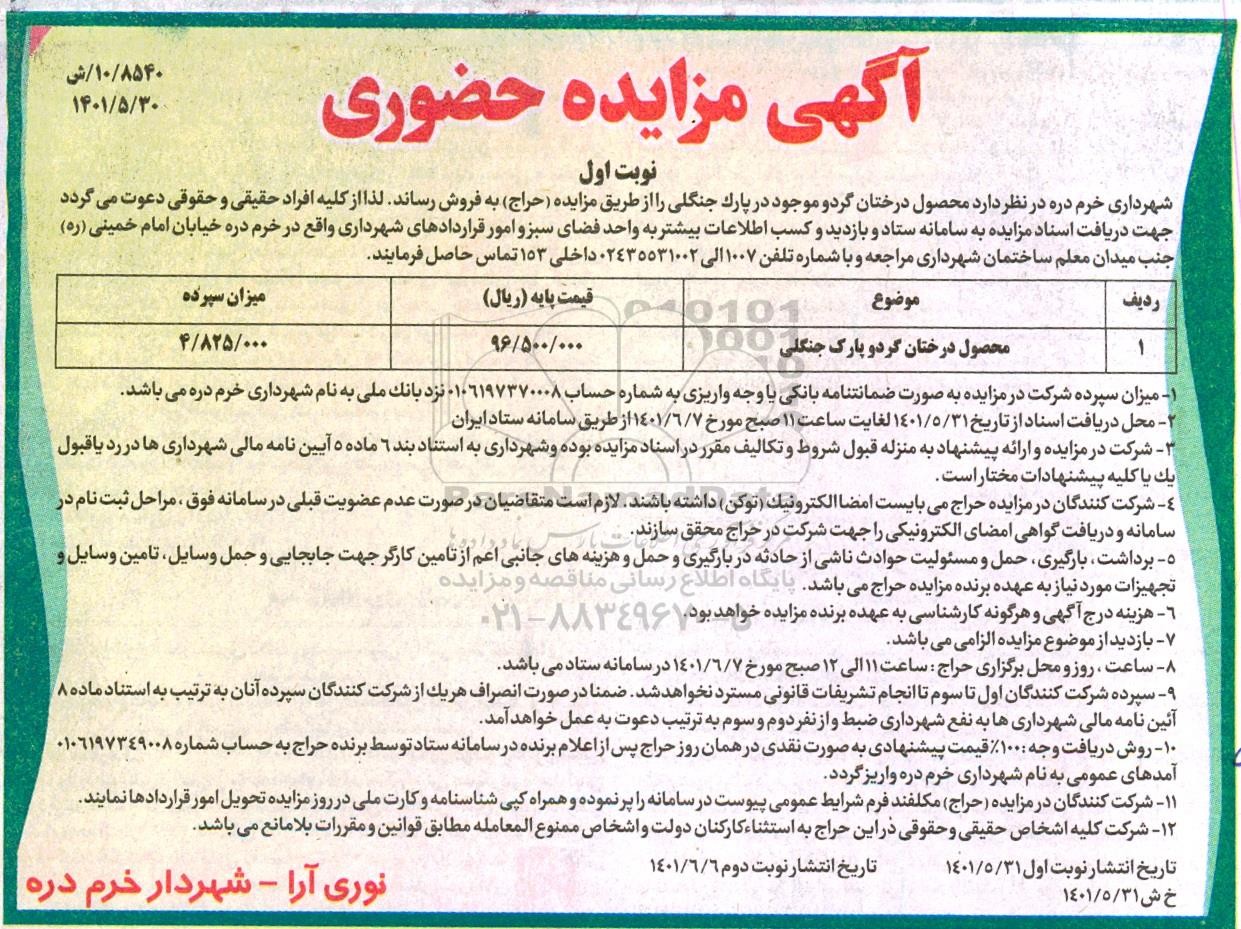 ۱۰/۸۵۴۰/ش
۱۴۰۱/۵/۳۰
آگهی مزایده حضوری
نوبت اول
شهرداری خرم دره در نظر دارد محصول درختان گردو موجود در پارك جنگلی را از طریق مزایده (حراج) به فروش رساند. لذا از کلیه افراد حقیقی و حقوقی دعوت می گردد
جهت دریافت اسناد مزایده به سامانه ستاد و بازدید و کسب اطلاعات بیشتر به واحد فضای سبز و امور قراردادهای شهرداری واقع در خرم دره خیابان امام خمینی (ره)
جنب میدان معلم ساختمان شهرداری مراجعه و با شماره تلفن ۱۰۰۷ الی ۰۲۴۳۵۵۳۱۰۰۲ داخلی ۱۵۳ تماس حاصل فرمایند.
ردیف موضوع قیمت پایه (ریال) میزان سپرده
۱ محصول درختان گردو پارک جنگلی ۹۶/۵۰۰/۰۰۰ ۴/۸۲۵/۰۰۰
۱- میزان سپرده شرکت در مزایده به صورت ضمانتنامه بانکی یا وجه واریزی به شماره حساب ۰۱۰٦۱۹۷۳۷۰۰۰۸ نزد بانك ملی به نام شهرداری خرم دره می باشد.
۲- محل دریافت اسناد از تاریخ ۱٤۰۱/٥/۳۱ لغایت ساعت ۱۱ صبح مورخ ۱٤۰۱/٦/۷ از طریق سامانه ستاد ایران
۳- شرکت در مزایده و ارائه پیشنهاد به منزله قبول شروط و تکالیف مقرر در اسناد مزایده بوده وشهرداری به استناد بند ٦ ماده ٥ آیین نامه مالی شهرداری ها در رد یاقبول
یك یا کلیه پیشنهادات مختار است.
٤- شرکت کنندگان در مزایده حراج می بایست امضا الکترونیك (توکن) داشته باشند. لازم است متقاضیان در صورت عدم عضویت قبلی در سامانه فوق، مراحل ثبت نام در
سامانه و دریافت گواهی امضای الکترونیکی را جهت شرکت در حراج محقق سازند.
٥- برداشت، بارگیری، حمل و مسئولیت حوادث ناشی از حادثه در بارگیری و حمل و هزینه های جانبی اعم از تامین کارگر جهت جابجایی و حمل وسایل، تامین وسایل و
تجهیزات مورد نیاز به عهده برنده مزایده حراج می باشد.
٦- هزینه درج آگهی و هرگونه کارشناسی به عهده برنده مزایده خواهد بود.
۷- بازدید از موضوع مزایده الزامی می باشد.
۸- ساعت، روز و محل برگزاری حراج: ساعت ۱۱ الی ۱۲ صبح مورخ ۱٤۰۱/٦/۷ در سامانه ستاد می باشد.
۹- سپرده شرکت کنندگان اول تا سوم تا انجام تشریفات قانونی مسترد نخواهد شد. ضمنا در صورت انصراف هر یك از شرکت کنندگان سپرده آنان به ترتیب به استناد ماده ۸
آئین نامه مالی شهرداری ها به نفع شهرداری ضبط و از نفر دوم و سوم به ترتیب دعوت به عمل خواهد آمد.
۱۰- روش دریافت وجه: ۱۰۰٪ قیمت پیشنهادی به صورت نقدی در همان روز حراج پس از اعلام برنده در سامانه ستاد توسط برنده حراج به حساب شماره ۰۱۰٦۱۹۷۳٤۹۰۰۸
آمدهای عمومی به نام شهرداری خرم دره واریز گردد.
۱۱- شرکت کنندگان در مزایده (حراج) مکلفند فرم شرایط عمومی پیوست در سامانه را پر نموده و همراه کپی شناسنامه و کارت ملی در روز مزایده تحویل امور قراردادها نمایند.
۱۲- شرکت کلیه اشخاص حقیقی وحقوقی در این حراج به استثناء کارکنان دولت و اشخاص ممنوع المعامله مطابق قوانین و مقررات بلامانع می باشد.
تاریخ انتشار نوبت اول ۱٤۰۱/٥/۳۱ تاریخ انتشار نوبت دوم ۱٤۰۱/٦/٦
خ ش ۱٤۰۱/٥/۳۱
نوری آرا - شهردار خرم دره
پایگاه اطلاع رسانی مناقصه و مزایده